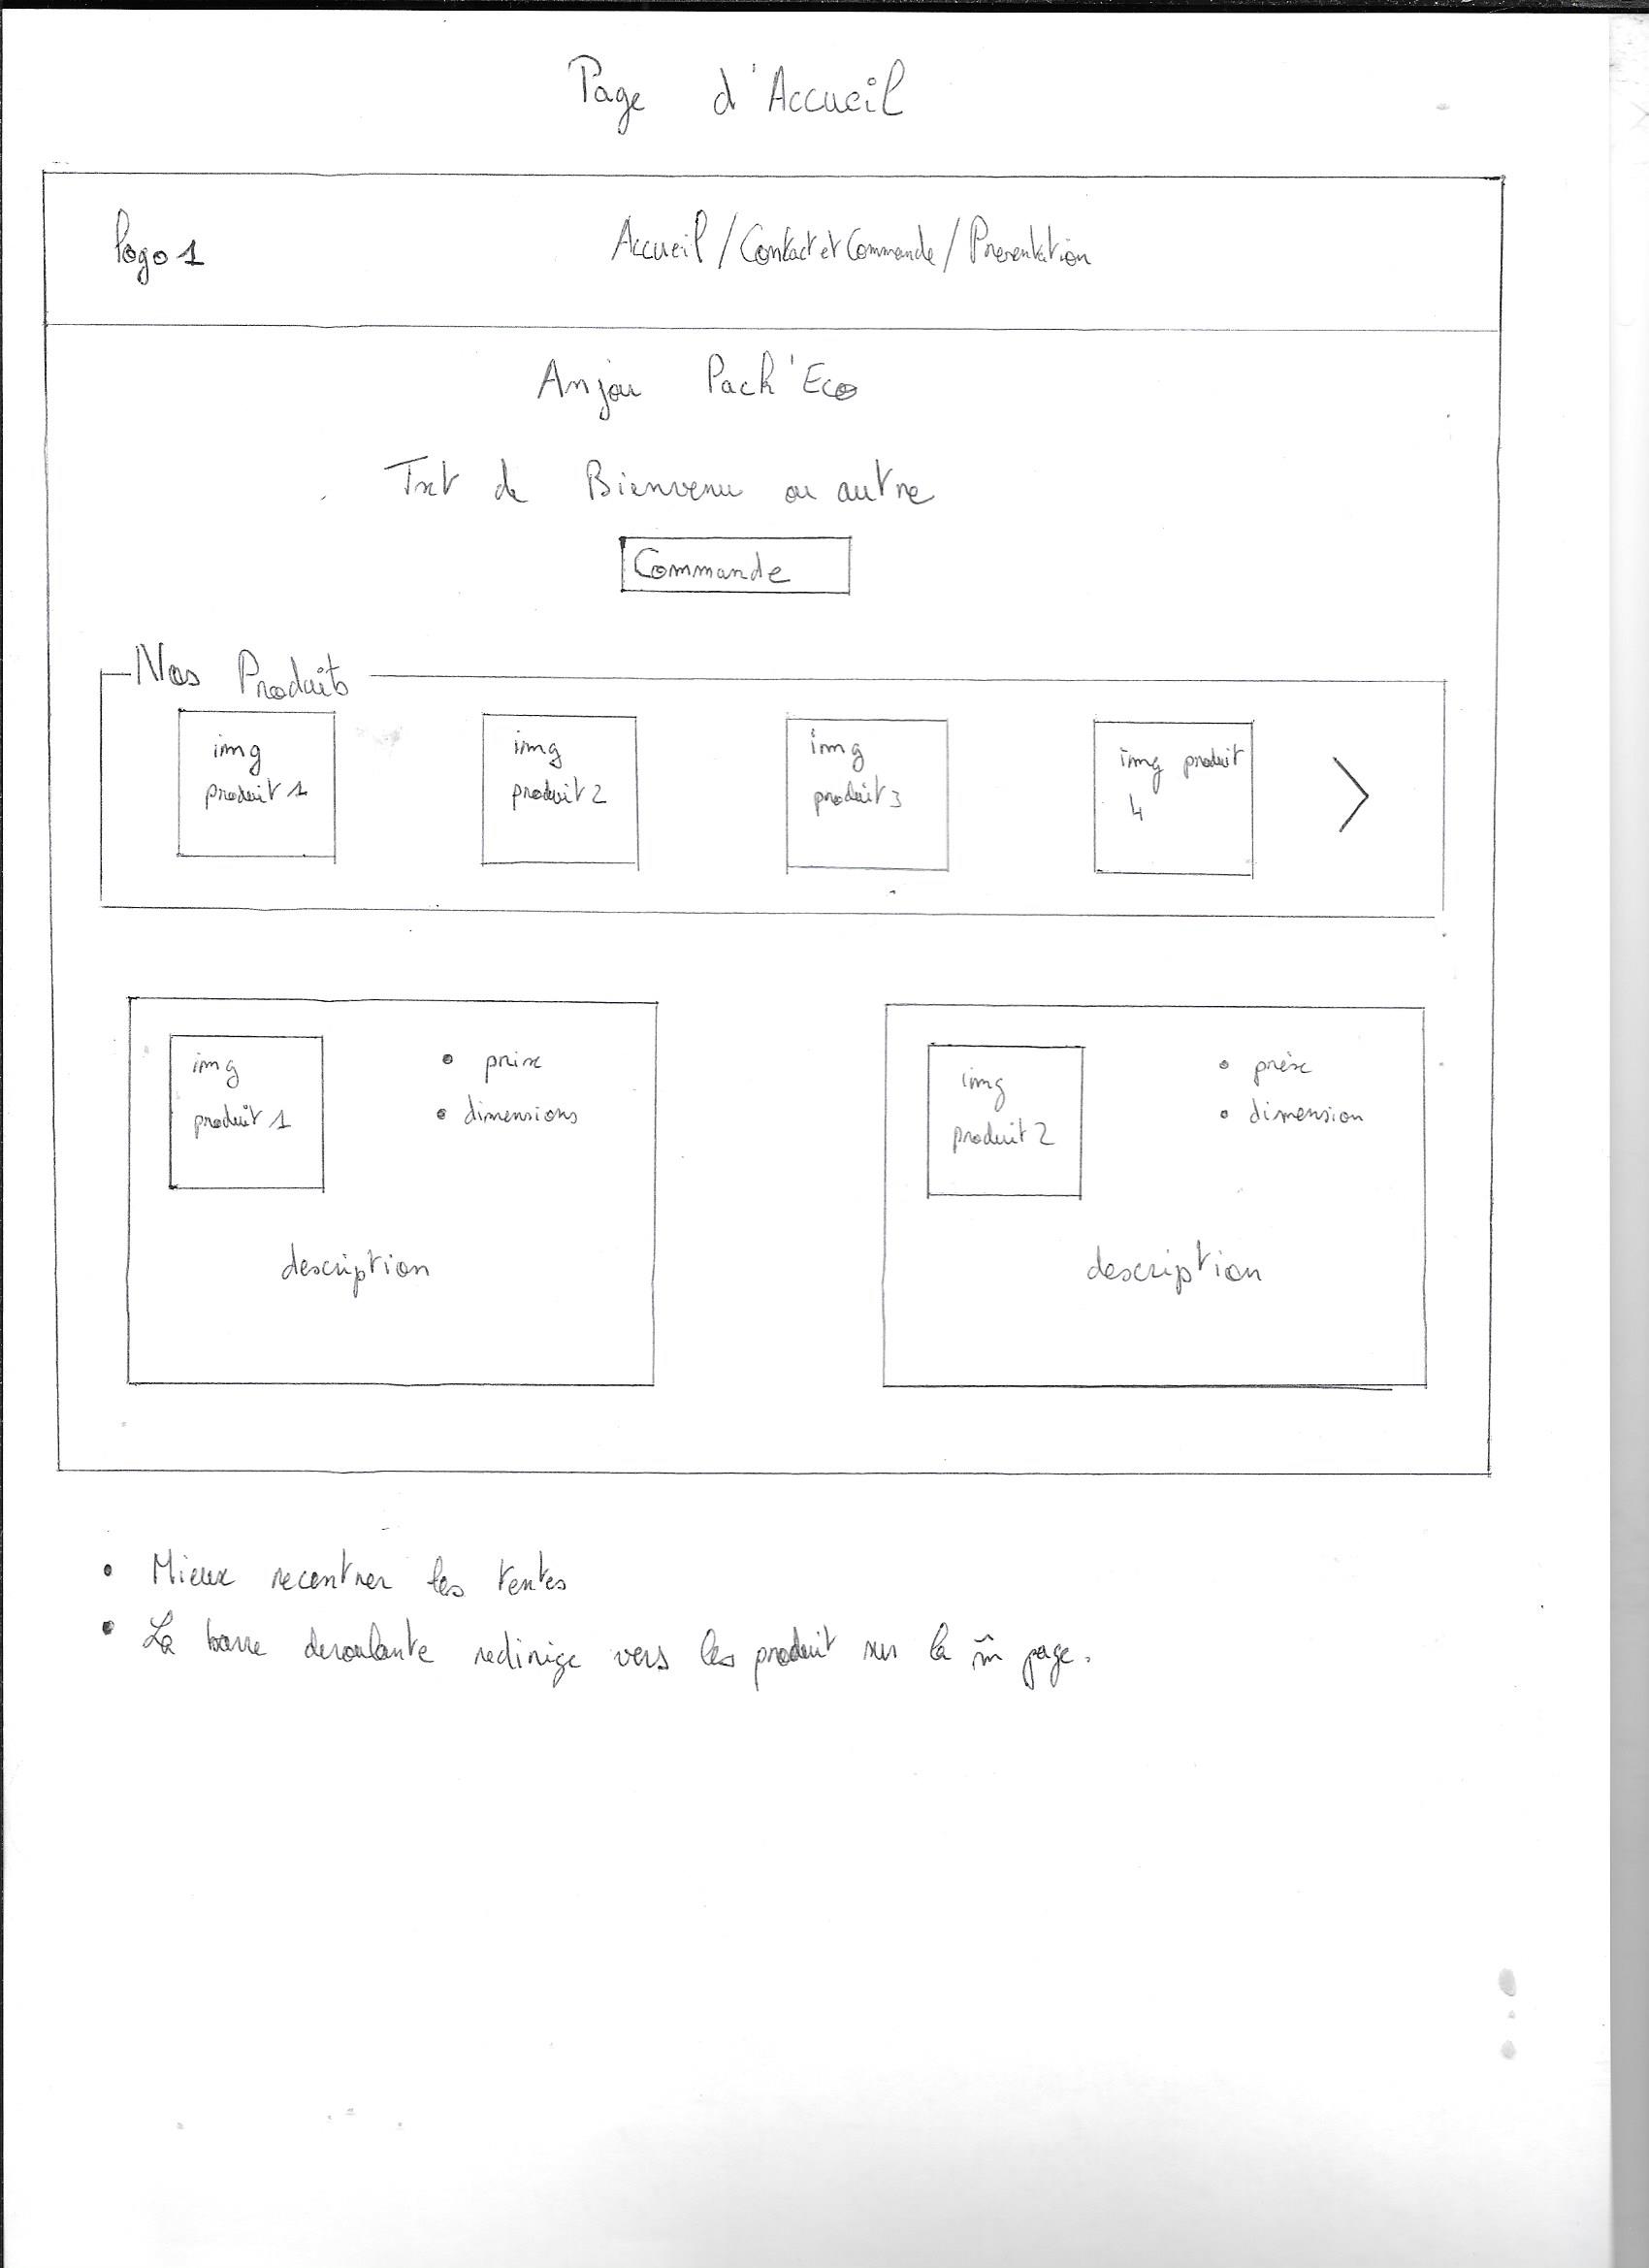 Page d'Accueil
logo 1
Accueil / Contact et Commande / Presentation
Anjou Pack'Eco
Txt de Bienvenu ou autre
Commande
Nos Produits
img
produit 1
img
produit 2
img
produit 3
img produit
4
img
produit 1
• prix
• dimensions
description
img
produit 2
• prix
• dimension
description
• Mieux recentrer les textes
• La barre deroulante redirige vers les produit sur la m̂ page.